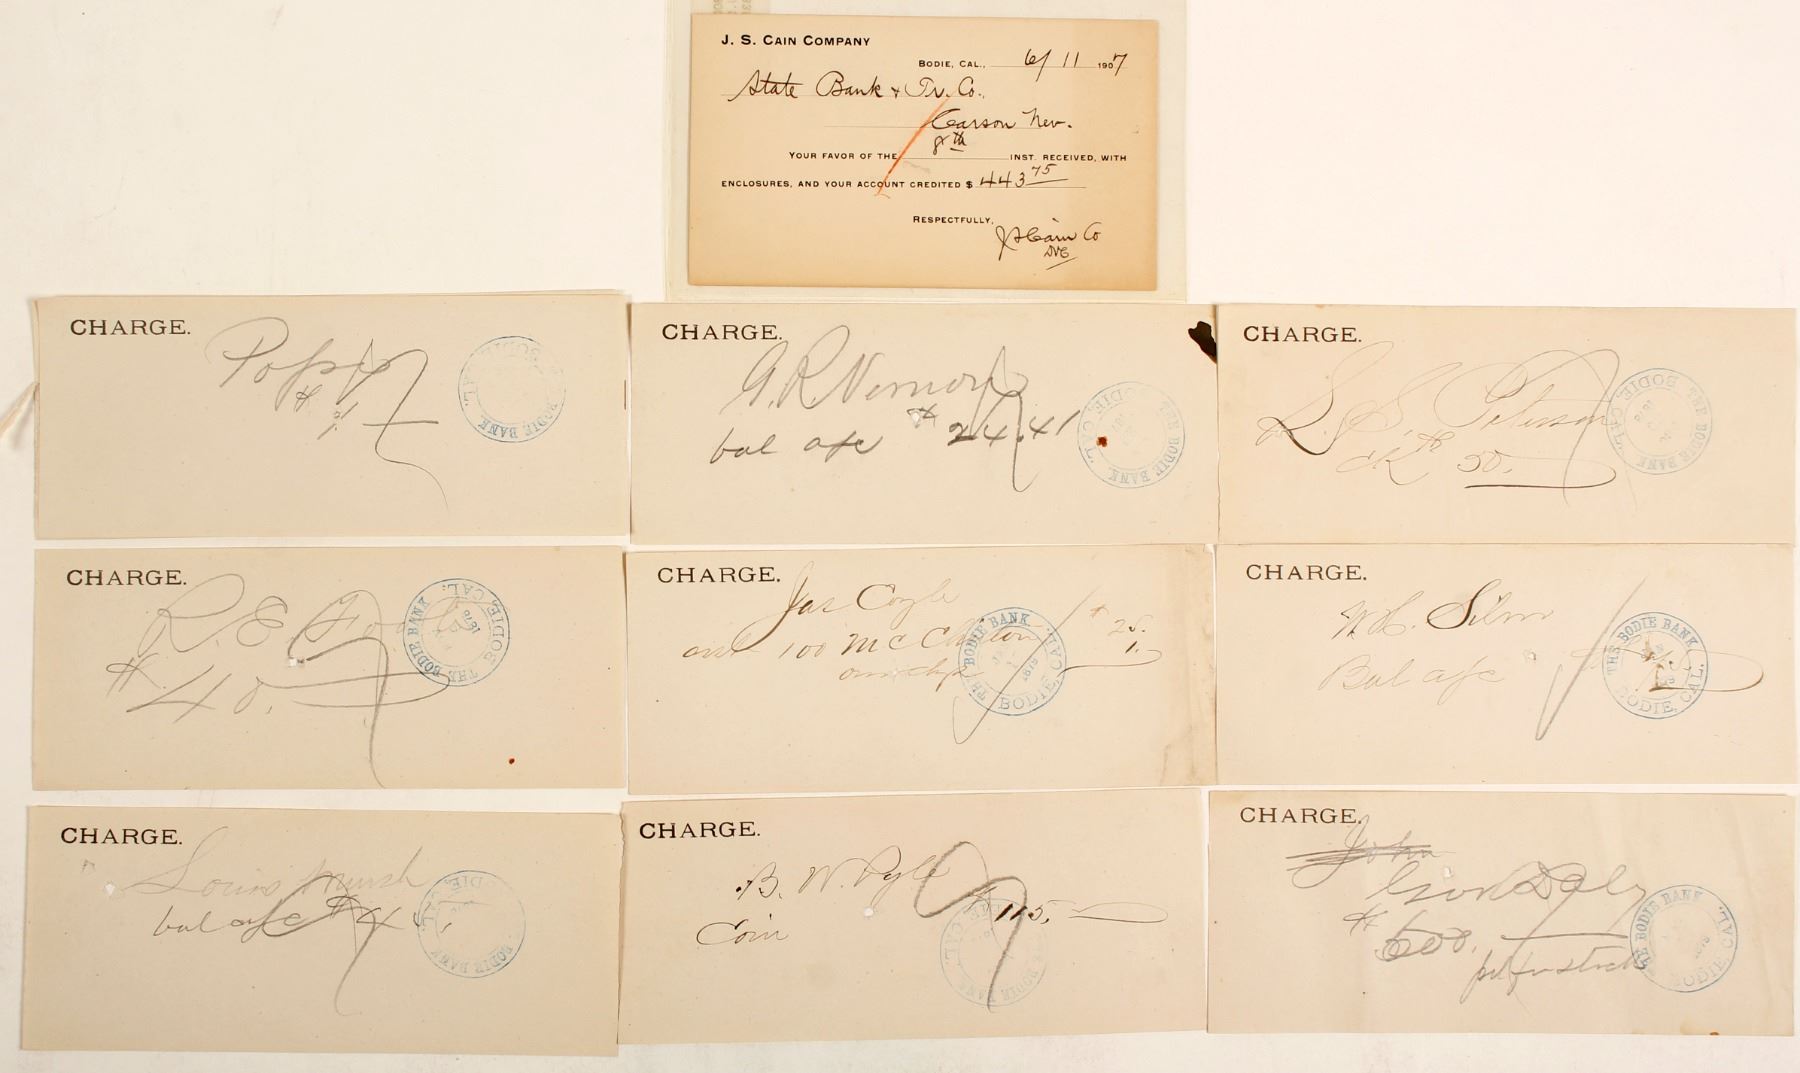 J. S. CAIN COMPANY
BODIE, CAL., 6/11 1907
State Bank & Tr. Co.
Carson Nev.
8th
YOUR FAVOR OF THE INST. RECEIVED, WITH
ENCLOSURES, AND YOUR ACCOUNT CREDITED $ 443 75
RESPECTFULLY,
J S Cain Co
DVC
CHARGE.
THE BODIE BANK
BODIE, CAL.
CHARGE.
G. R. Vernon
bal a/c $24.41
THE BODIE BANK
BODIE, CAL.
CHARGE.
L. S. Peterson
ck $50.
THE BODIE BANK
BODIE, CAL.
1878
CHARGE.
R. E.
$40.
THE BODIE BANK
BODIE, CAL.
1878
CHARGE.
Jas Coyle
100 McClinton
$25.
THE BODIE BANK
BODIE, CAL.
1879
CHARGE.
Bal a/c
THE BODIE BANK
BODIE, CAL.
CHARGE.
Louis
bal a/c $4
BODIE BANK
CAL.
CHARGE.
B. W. Pyle
Coin $115.
BODIE BANK
CAL.
CHARGE.
John
Geo Daly
$600.
THE BODIE BANK
BODIE, CAL.
1879